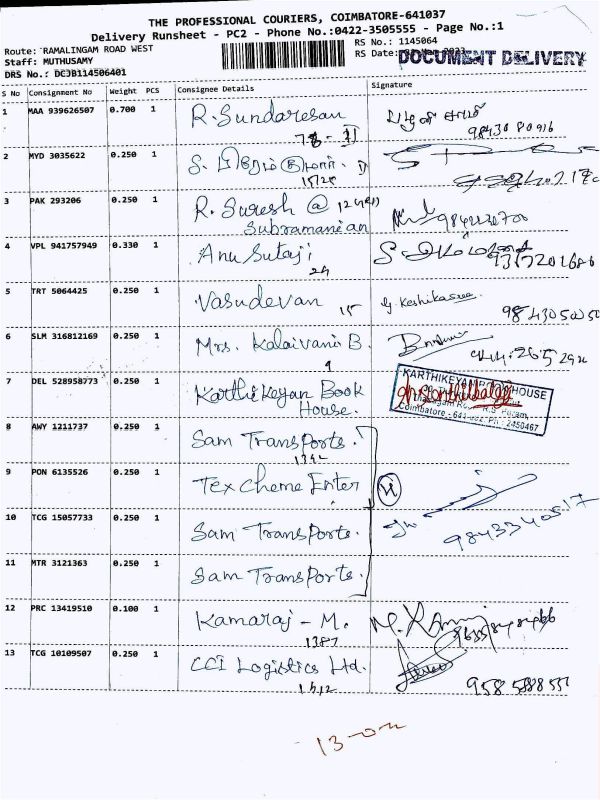 THE PROFESSIONAL COURIERS, COIMBATORE-641037
Delivery Runsheet - PC2 - Phone No.:0422-3505555 - Page No.:1
Route: RAMALINGAM ROAD WEST
RS No.: 1145064
Staff: MUTHUSAMY
RS Date:
DOCUMENT DELIVERY
DRS No.: DCJB114506401
S No Consignment No Weight PCS Consignee Details Signature
1 MAA 939626507 0.700 1 R. Sundaresan
98430 80916
2 MYD 3035622 0.250 1 S.
15/25
3 PAK 293206 0.250 1 R. Suresh @
Subramanian
4 VPL 941757949 0.330 1 Anu Sutaji
24
5 TRT 5064425 0.250 1 Vasudevan 15 g. Keshikasree.
98430 50050
6 SLM 316812169 0.250 1 Mrs. Kalaivani B.
9
7 DEL 528958773 0.250 1 Karthikeyan Book
House.
KARTHIKEYAN BOOK HOUSE
Coimbatore - 641 002. Ph: 2450467
8 AWY 1211737 0.250 1 Sam Transports.
9 PON 6135526 0.250 1 Tex Cheme Enter
10 TCG 15057733 0.250 1 Sam Transports.
9843340517
11 MTR 3121363 0.250 1 Sam Transports.
12 PRC 13419510 0.100 1 Kamaraj - M.
1387
13 TCG 10109507 0.250 1 CCI Logistics Ltd.